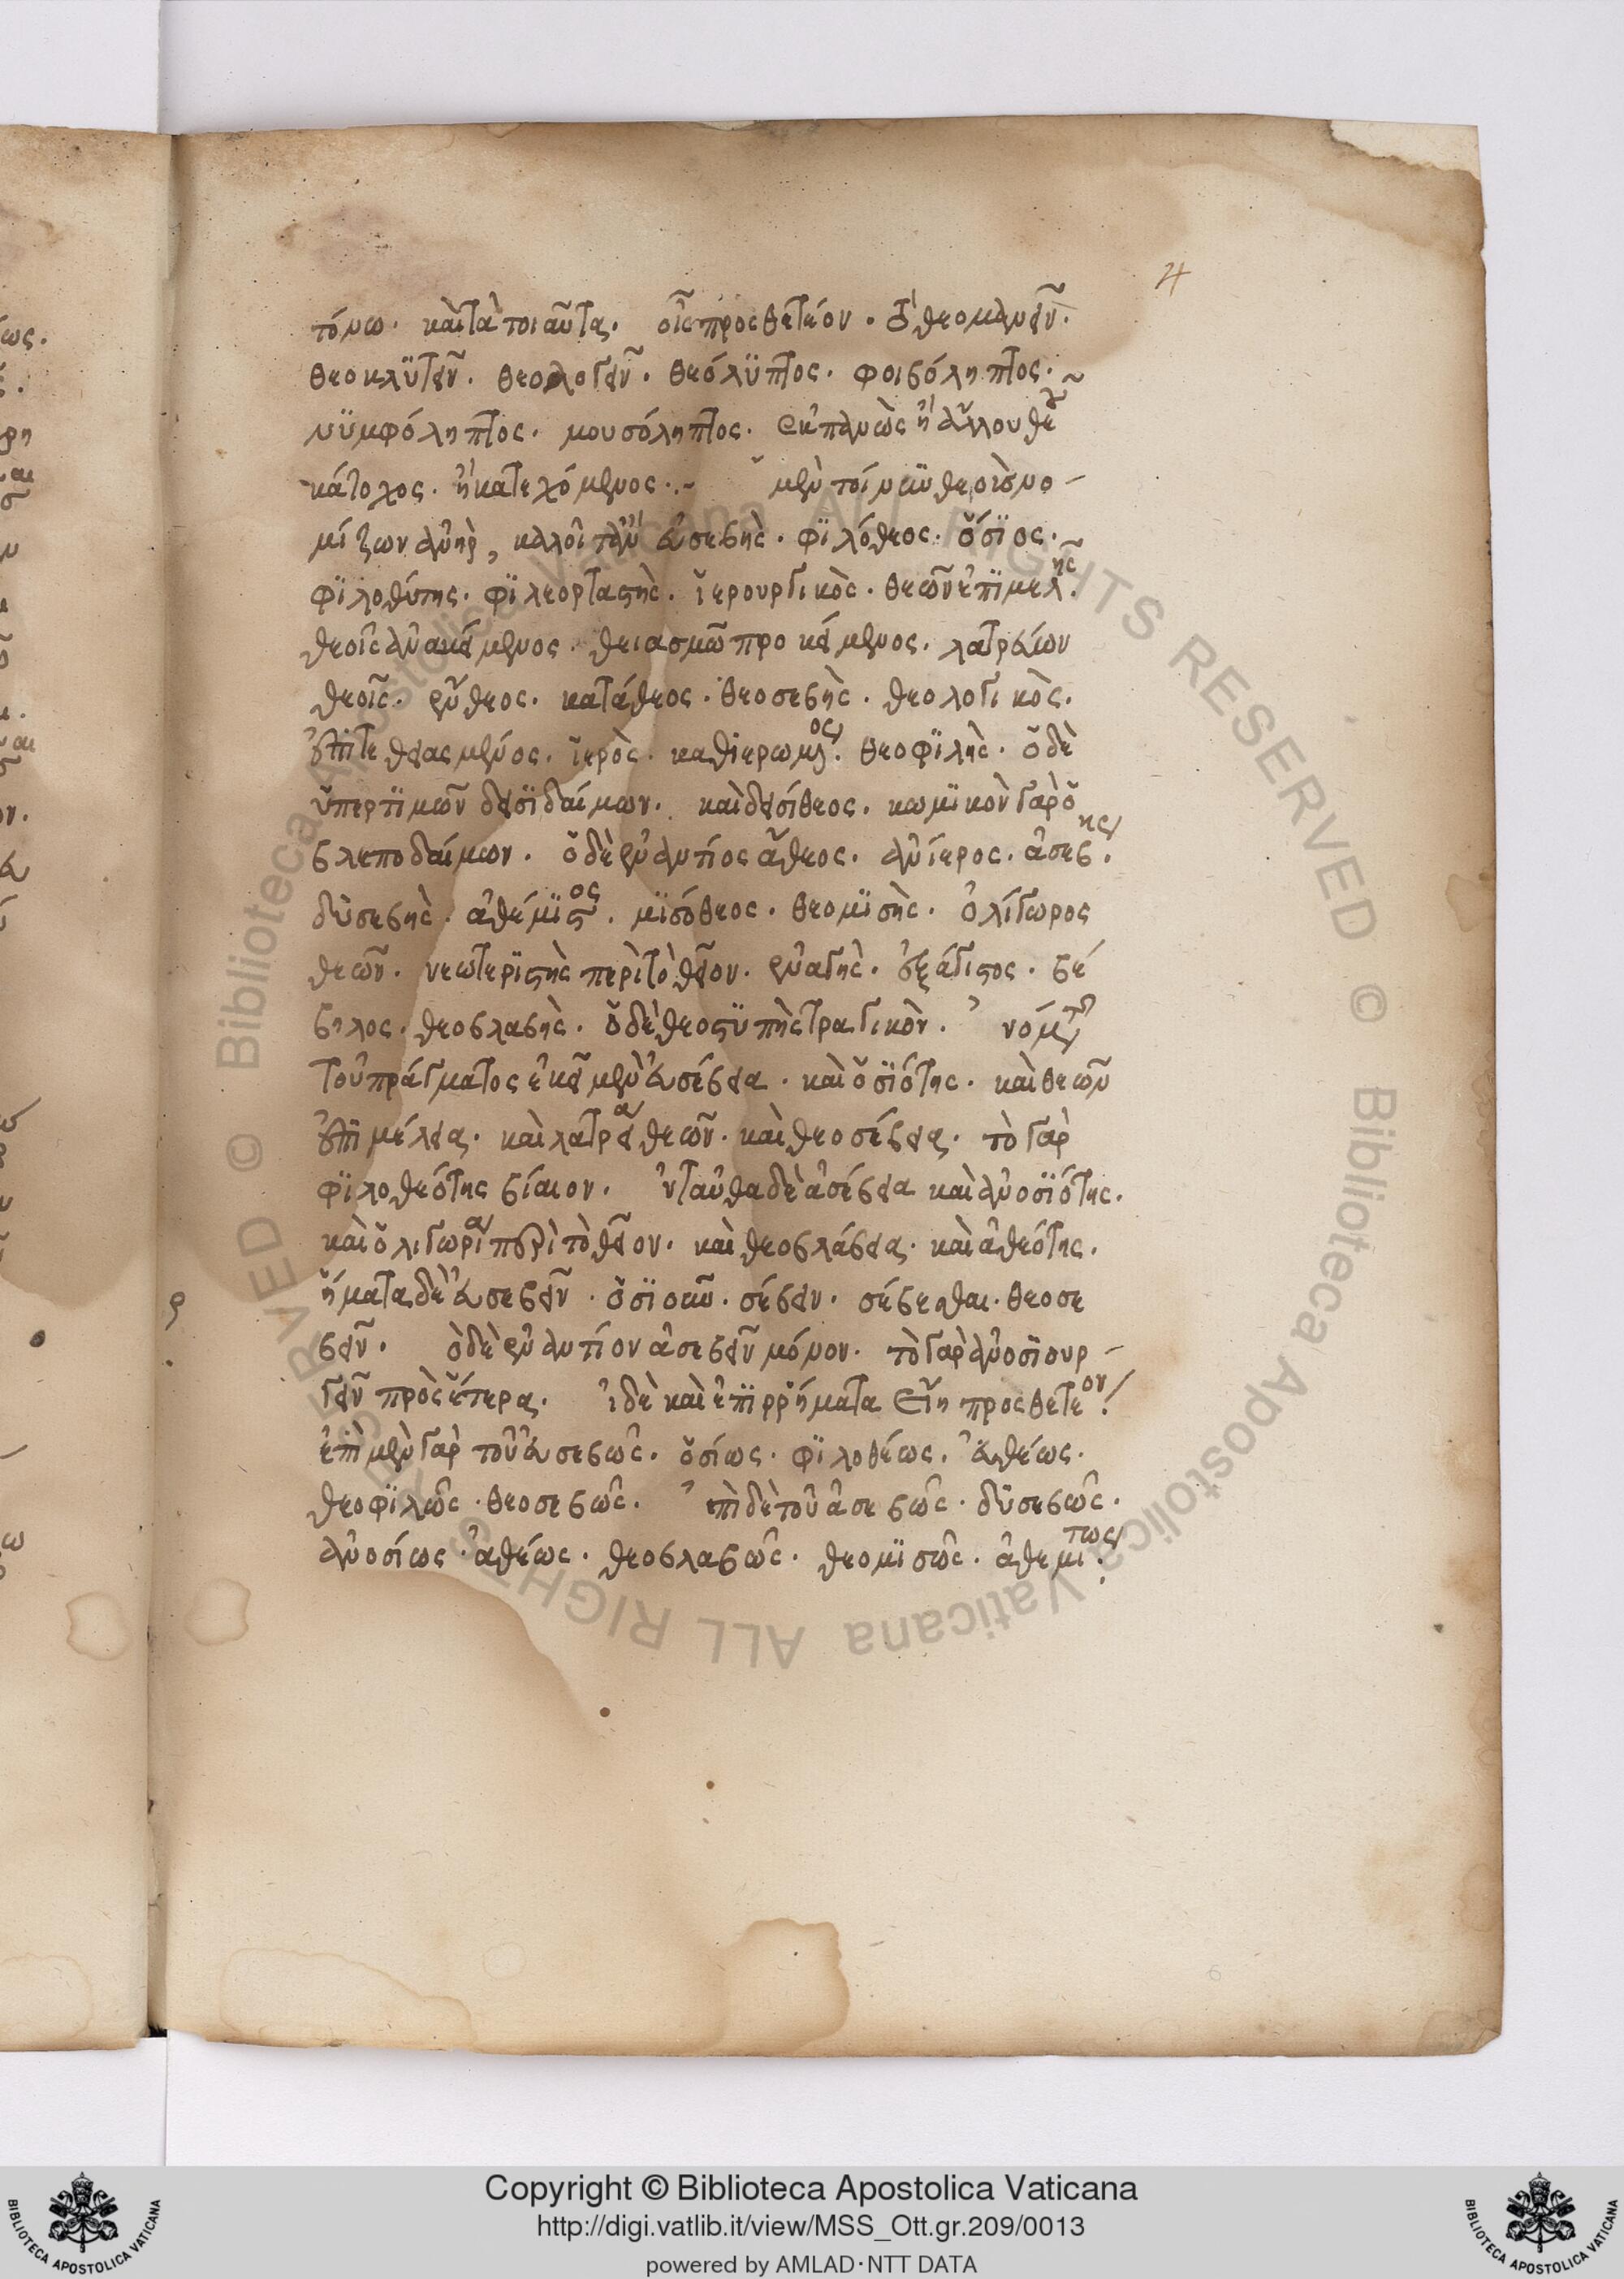 4
τόμω. καὶ τὰ τοιαῦτα. οἷς προσθετέον. τὸ θεομανεῖν.
θεοκλϋτεῖν. θεολογεῖν. θεόλϋπτος. φοιβόληπτος.
νϋμφόληπτος. μουσόληπτος. ἐκ πανὸς ἢ ἄλλου θεοῦ
κάτοχος. ἢ κατεχόμενος. ὁ μὲν τοίνυν θεοὺς νο-
μίζων ἀνὴρ, καλοῖτ' ἂν εὐσεβὴς. φϊλόθεος. ὅσϊος.
φϊλοθύτης. φϊλεορταστὴς. ἱερουργικὸς. θεῶν ἐπϊμελὴς.
θεοῖς ἀνακείμενος. θειασμῶ προκείμενος. λατρεύων
θεοῖς. ἔνθεος. κατάθεος. θεοσεβὴς. θεολογικὸς.
ἐπιτεθειασμένος. ἱερὸς. καθιερωμένος. θεοφϊλὴς. ὁ δὲ
ὑπερτϊμῶν δεισϊδαίμων. καὶ δεισίθεος. κωμϊκὸν γὰρ ὁ
βλεποδαίμων. ὁ δὲ ἐναντίος ἄθεος. ἀνίερος. ἀσεβὴς.
δϋσεβὴς. ἀθέμϊστος. μϊσόθεος. θεομϊσὴς. ὀλίγωρος
θεῶν. νεωτερϊστὴς περὶ τὸ θεῖον. ἐναγὴς. ἐξάγιστος. βέ
βηλος. θεοβλαβὴς. ὁ δὲ θεοστϋπὴς τραγικὸν. νόμ
τοῦ πράγματος ἐκεῖ μὲν εὐσέβεια. καὶ ὁσϊότης. καὶ θεῶν
ἐπιμέλεια. καὶ λατρεία θεῶν. καὶ θεοσέβεια. τὸ γὰρ
φϊλοθεότης βίαιον. ἐνταῦθα δὲ ἀσέβεια καὶ ἀνοσϊότης.
καὶ ὀλιγωρία περὶ τὸ θεῖον. καὶ θεοβλάβεια. καὶ ἀθεότης.
ῥήματα δὲ εὐσεβεῖν. ὁσϊοῦν. σέβειν. σέβεσθαι. θεοσε
βεῖν. τὸ δὲ ἐναντίον ἀσεβεῖν μόνον. τὸ γὰρ ἀνοσϊουρ-
γεῖν πρὸς ἕτερα. ἤδη καὶ ἐπϊρρήματα εἴη προσθετέον.
ἐπὶ μὲν γὰρ τοῦ εὐσεβῶς. ὁσίως. φϊλοθέως. ἐνθέως.
θεοφϊλῶς. θεοσεβῶς. ἐπὶ δὲ τοῦ ἀσεβῶς. δϋσεβῶς.
ἀνοσίως. ἀθέως. θεοβλαβῶς. θεομϊσῶς. ἀθεμίτως.
Copyright © Biblioteca Apostolica Vaticana
http://digi.vatlib.it/view/MSS_Ott.gr.209/0013
powered by AMLAD·NTT DATA
BIBLIOTECA APOSTOLICA VATICANA
BIBLIOTECA APOSTOLICA VATICANA
© Biblioteca Apostolica Vaticana ALL RIGHTS RESERVED © Biblioteca Apostolica Vaticana ALL RIGHTS RESERVED